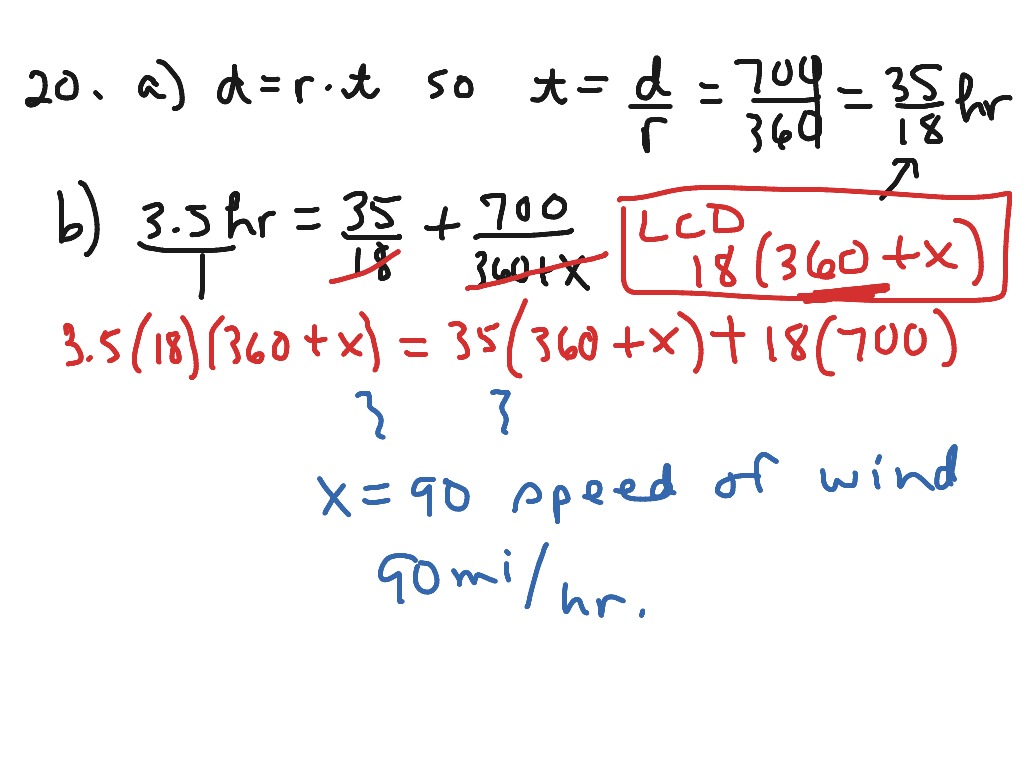 20. a) d = r · t so t = d/r = 700/360 = 35/18 hr
b) 3.5 hr / 1 = 35/18 + 700/(360+x)
LCD
18(360+x)
3.5(18)(360+x) = 35(360+x) + 18(700)
x = 90 speed of wind
90 mi/hr.